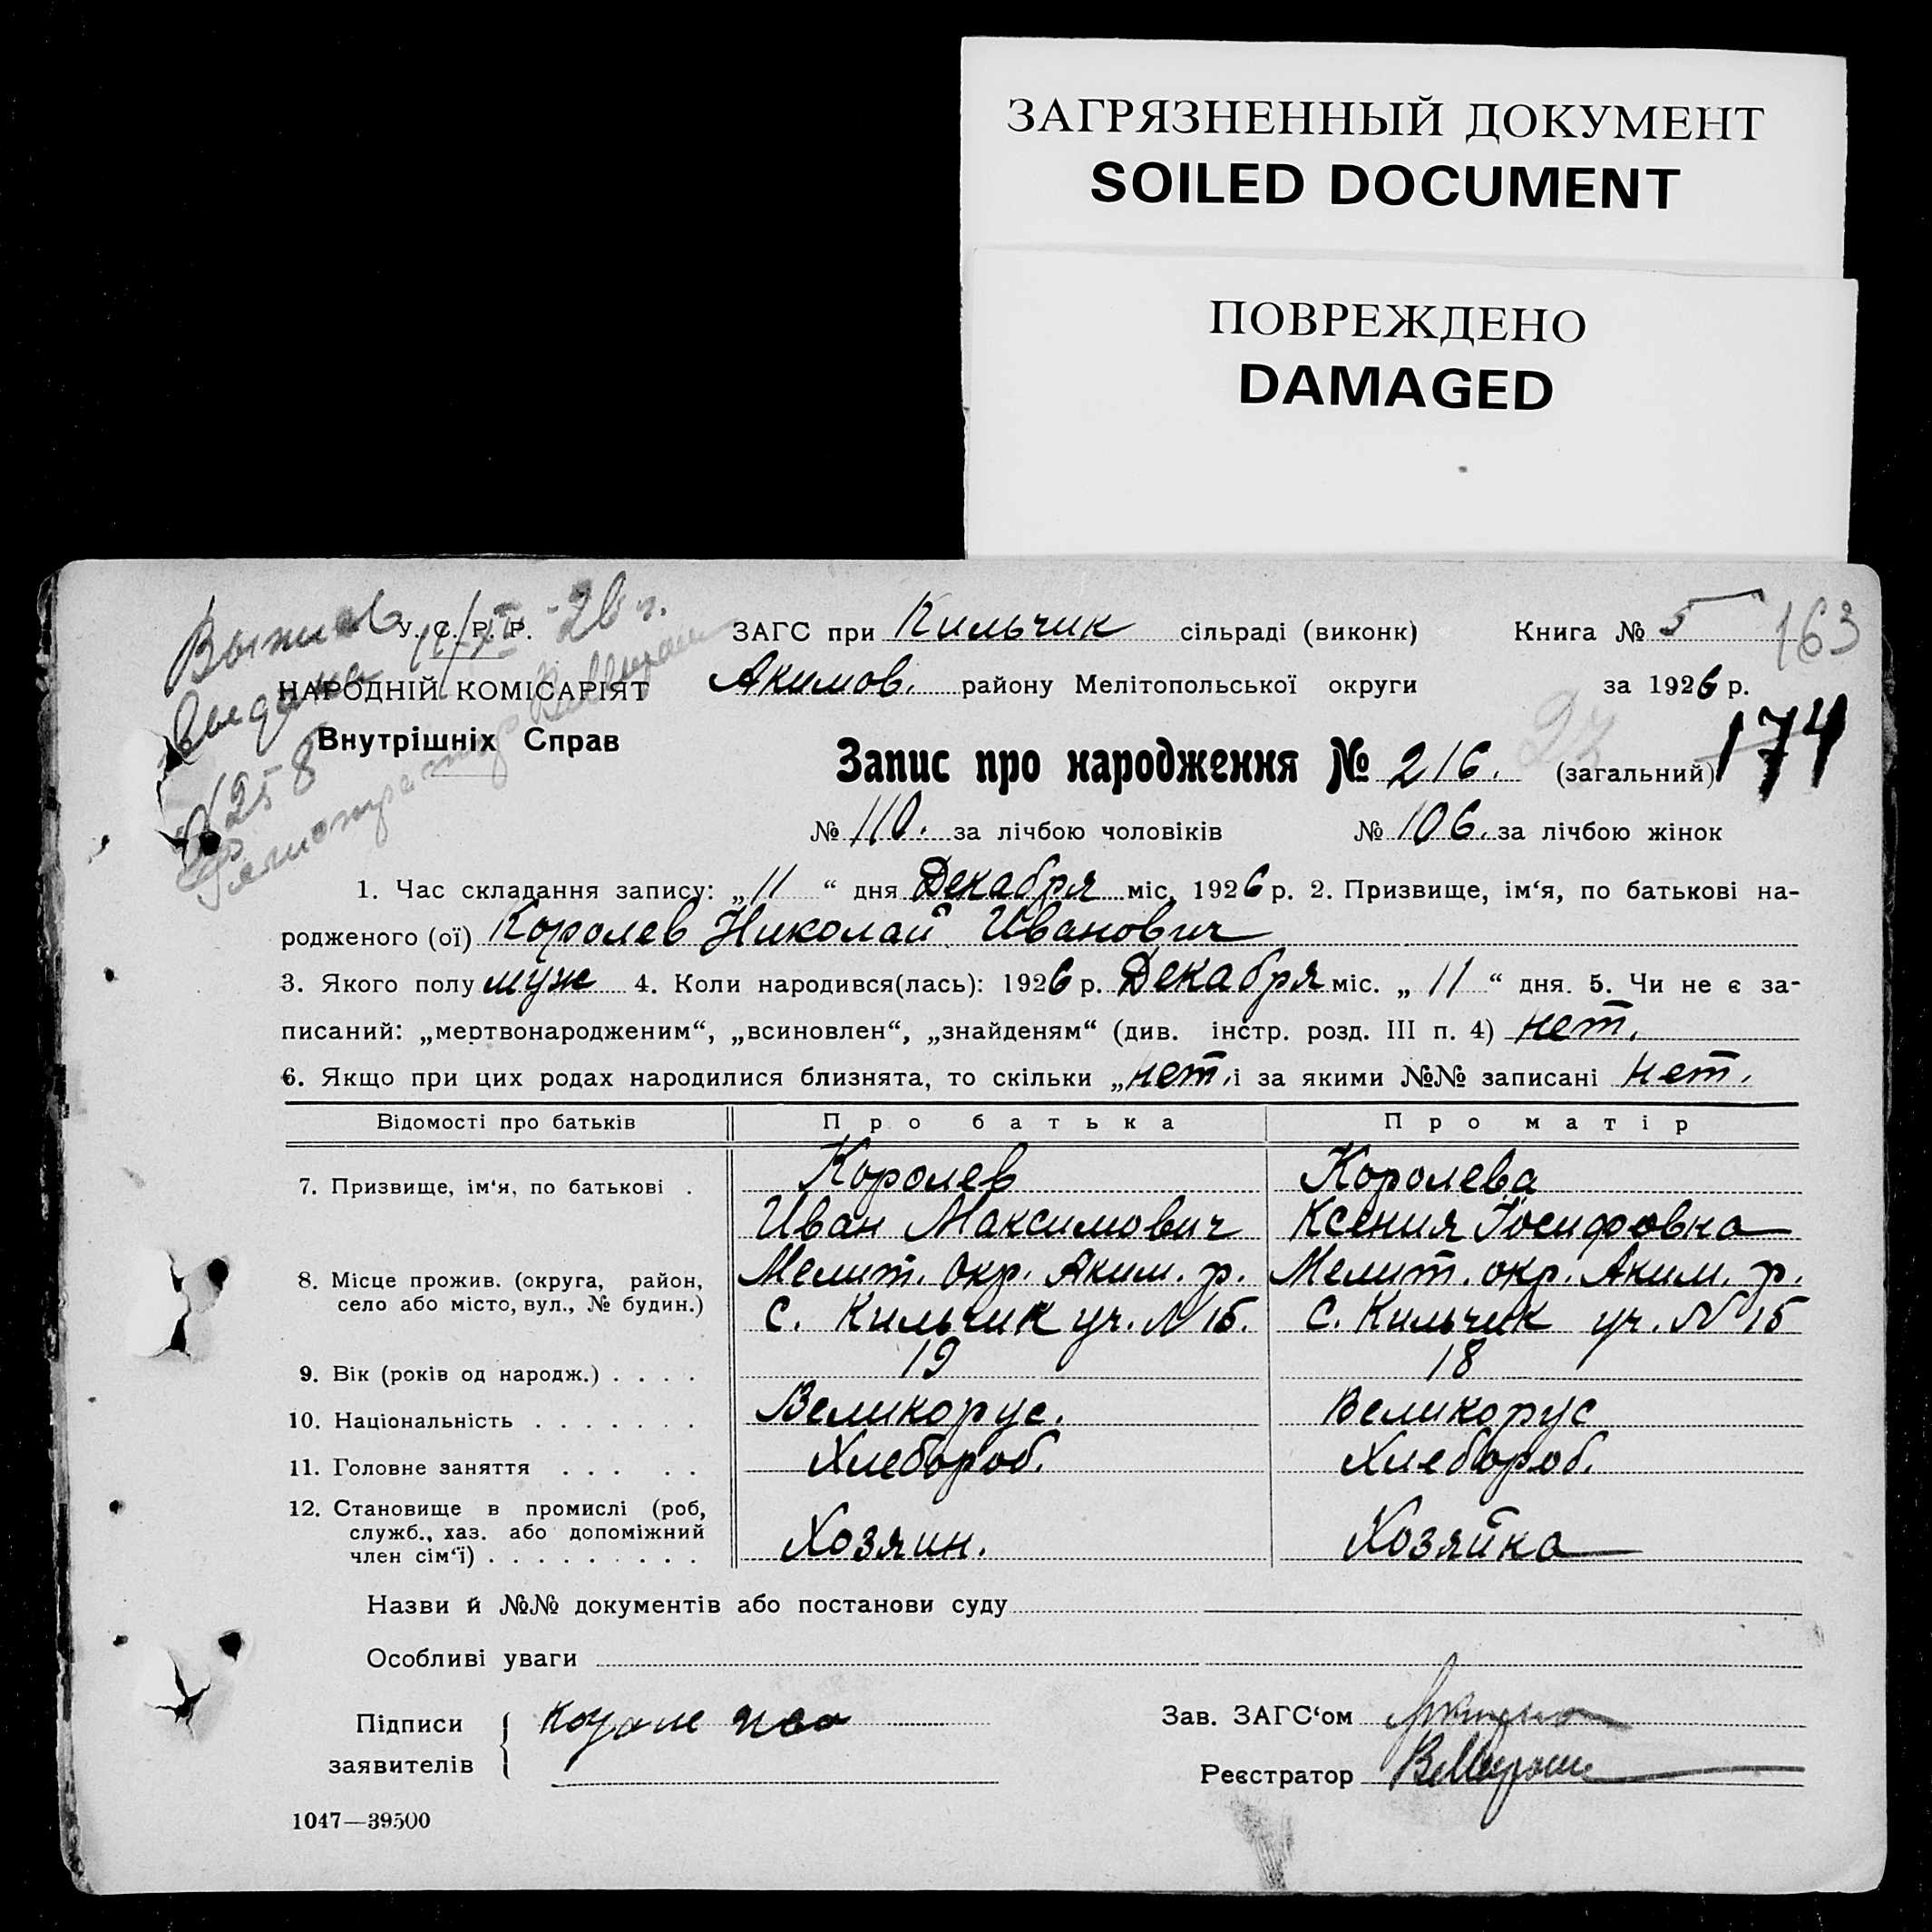 ЗАГРЯЗНЕННЫЙ ДОКУМЕНТ
SOILED DOCUMENT
ПОВРЕЖДЕНО
DAMAGED
У. С. Р. Р.
11/XII-26 г.
НАРОДНІЙ КОМІСАРІЯТ
Внутрішніх Справ
N 258
ЗАГС при Кильчик сільраді (виконк) Книга № 5
163
Акимов. району Мелітопольської округи за 1926 р.
23
174
Запис про народження № 216. (загальний)
№ 110. за лічбою чоловіків № 106. за лічбою жінок
1. Час складання запису: „11“ дня Декабря міс. 1926 р. 2. Призвище, ім‘я, по батькові на-
родженого (ої) Королев Николай Иванович
3. Якого полу муж 4. Коли народився(лась): 1926 р. Декабря міс. „11“ дня. 5. Чи не є за-
писаний: „мертвонародженим“, „всиновлен“, „знайденям“ (див. інстр. розд. III п. 4) нет.
6. Якщо при цих родах народилися близнята, то скільки „нет, і за якими №№ записані нет.
Відомості про батьків Про батька Про матір
7. Призвище, ім‘я, по батькові . Королев Королева
Иван Максимович Ксения Іосифовна
8. Місце прожив. (округа, район, Мелит. окр. Аким. р. Мелит. окр. Аким. р.
село або місто, вул., № будин.) с. Кильчик уч. N 15. с. Кильчик уч. N 15
9. Вік (років од народж.) . . . . 19 18
10. Національність . . . . . . . Великорус. Великорус
11. Головне заняття . . . . . Хлебороб. Хлебороб.
12. Становище в промислі (роб,
служб., хаз. або допоміжний
член сім‘ї) . . . . . . . . . Хозяин. Хозяйка
Назви й №№ документів або постанови суду
Особливі уваги
Підписи
заявителів
Зав. ЗАГС‘ом
Реєстратор
1047—39500